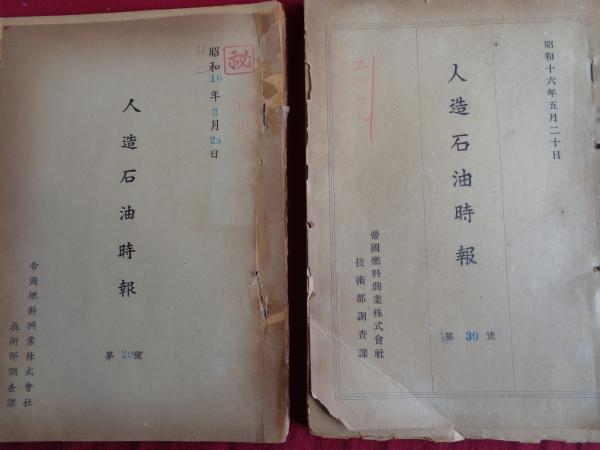 秘
昭和16年3月28日
人造石油時報
帝國燃料興業株式會社
技術部調査課
第29號
昭和十六年五月二十日
人造石油時報
帝國燃料興業株式會社
技術部調査課
第30號